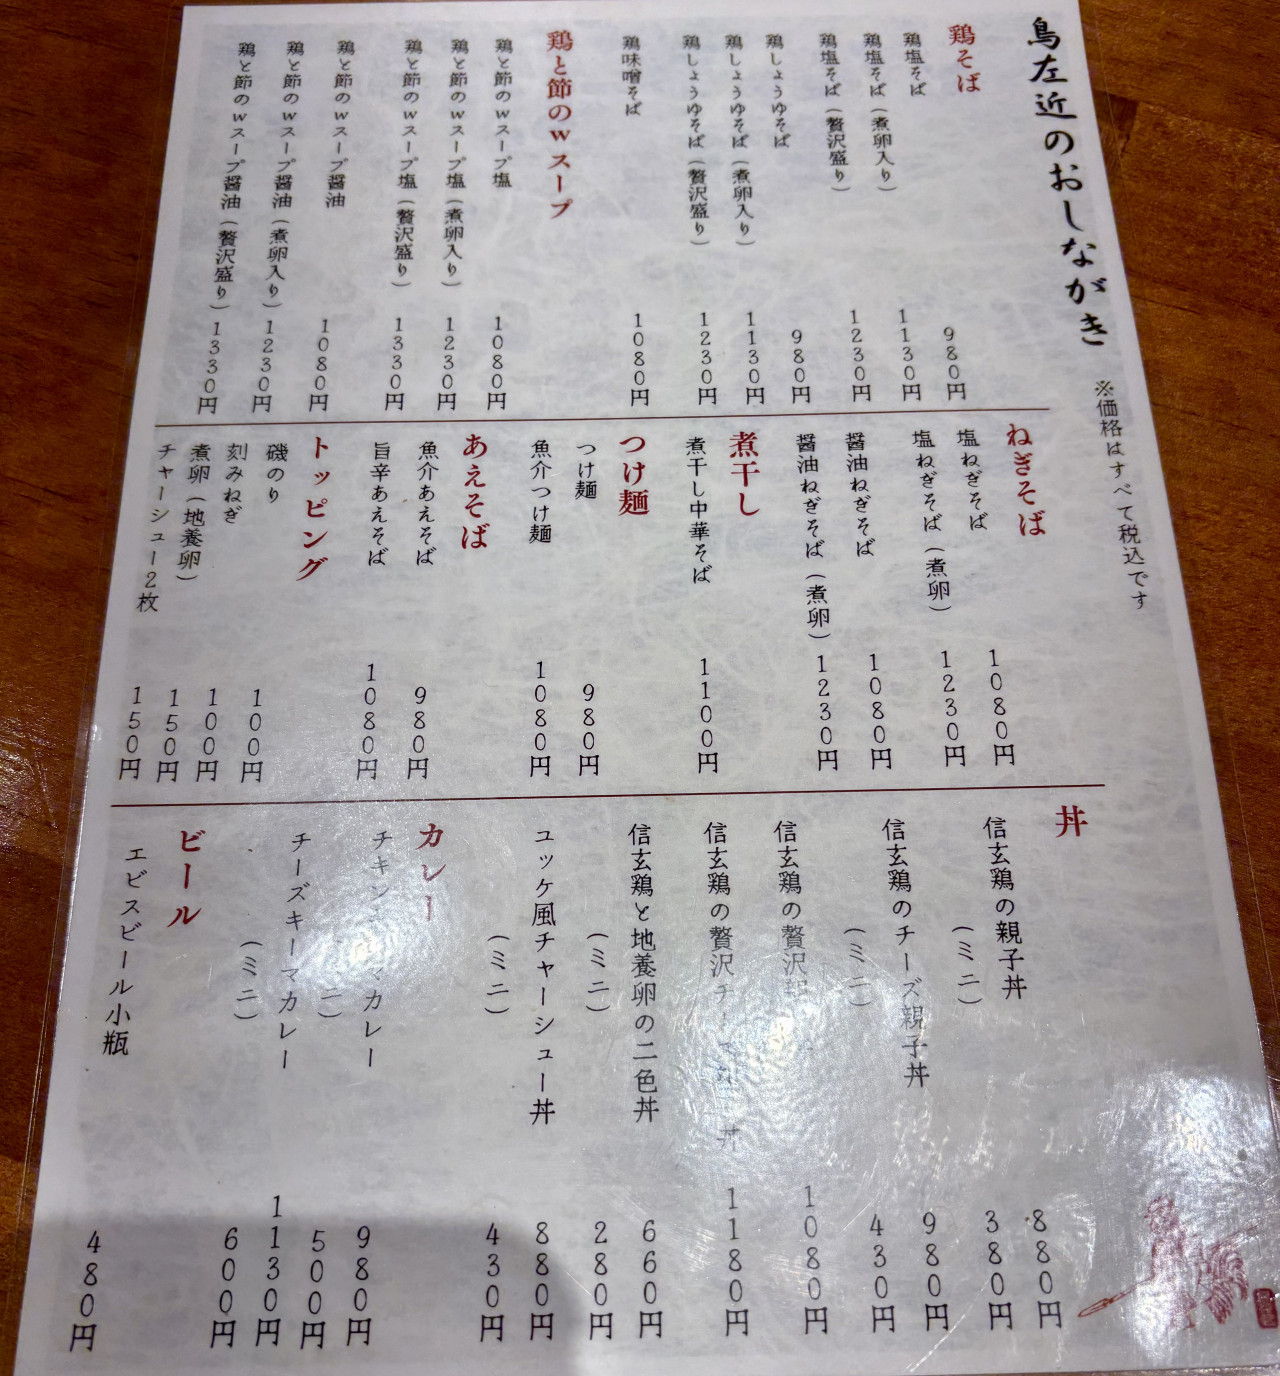 鳥左近のおしながき
※価格はすべて税込です
鶏そば
鶏塩そば 980円
鶏塩そば（煮卵入り） 1130円
鶏塩そば（贅沢盛り） 1230円
鶏しょうゆそば 980円
鶏しょうゆそば（煮卵入り） 1130円
鶏しょうゆそば（贅沢盛り） 1230円
鶏味噌そば 1080円
鶏と節のwスープ
鶏と節のwスープ塩 1080円
鶏と節のwスープ塩（煮卵入り） 1230円
鶏と節のwスープ塩（贅沢盛り） 1330円
鶏と節のwスープ醤油 1080円
鶏と節のwスープ醤油（煮卵入り） 1230円
鶏と節のwスープ醤油（贅沢盛り） 1330円
ねぎそば
塩ねぎそば 1080円
塩ねぎそば（煮卵） 1230円
醤油ねぎそば 1080円
醤油ねぎそば（煮卵） 1230円
煮干し
煮干し中華そば 1100円
つけ麺
つけ麺 980円
魚介つけ麺 1080円
あえそば
魚介あえそば 980円
旨辛あえそば 1080円
トッピング
磯のり 100円
刻みねぎ 100円
煮卵（地養卵） 150円
チャーシュー2枚 150円
丼
信玄鶏の親子丼 880円
（ミニ） 380円
信玄鶏のチーズ親子丼 980円
（ミニ） 430円
信玄鶏の贅沢 1080円
信玄鶏の贅沢チ 丼 1180円
信玄鶏と地養卵の二色丼 660円
（ミニ） 280円
ユッケ風チャーシュー丼 880円
（ミニ） 430円
カレー
チキン マカレー 980円
ニ） 500円
チーズキーマカレー 1130円
（ミニ） 600円
ビール
エビスビール小瓶 480円